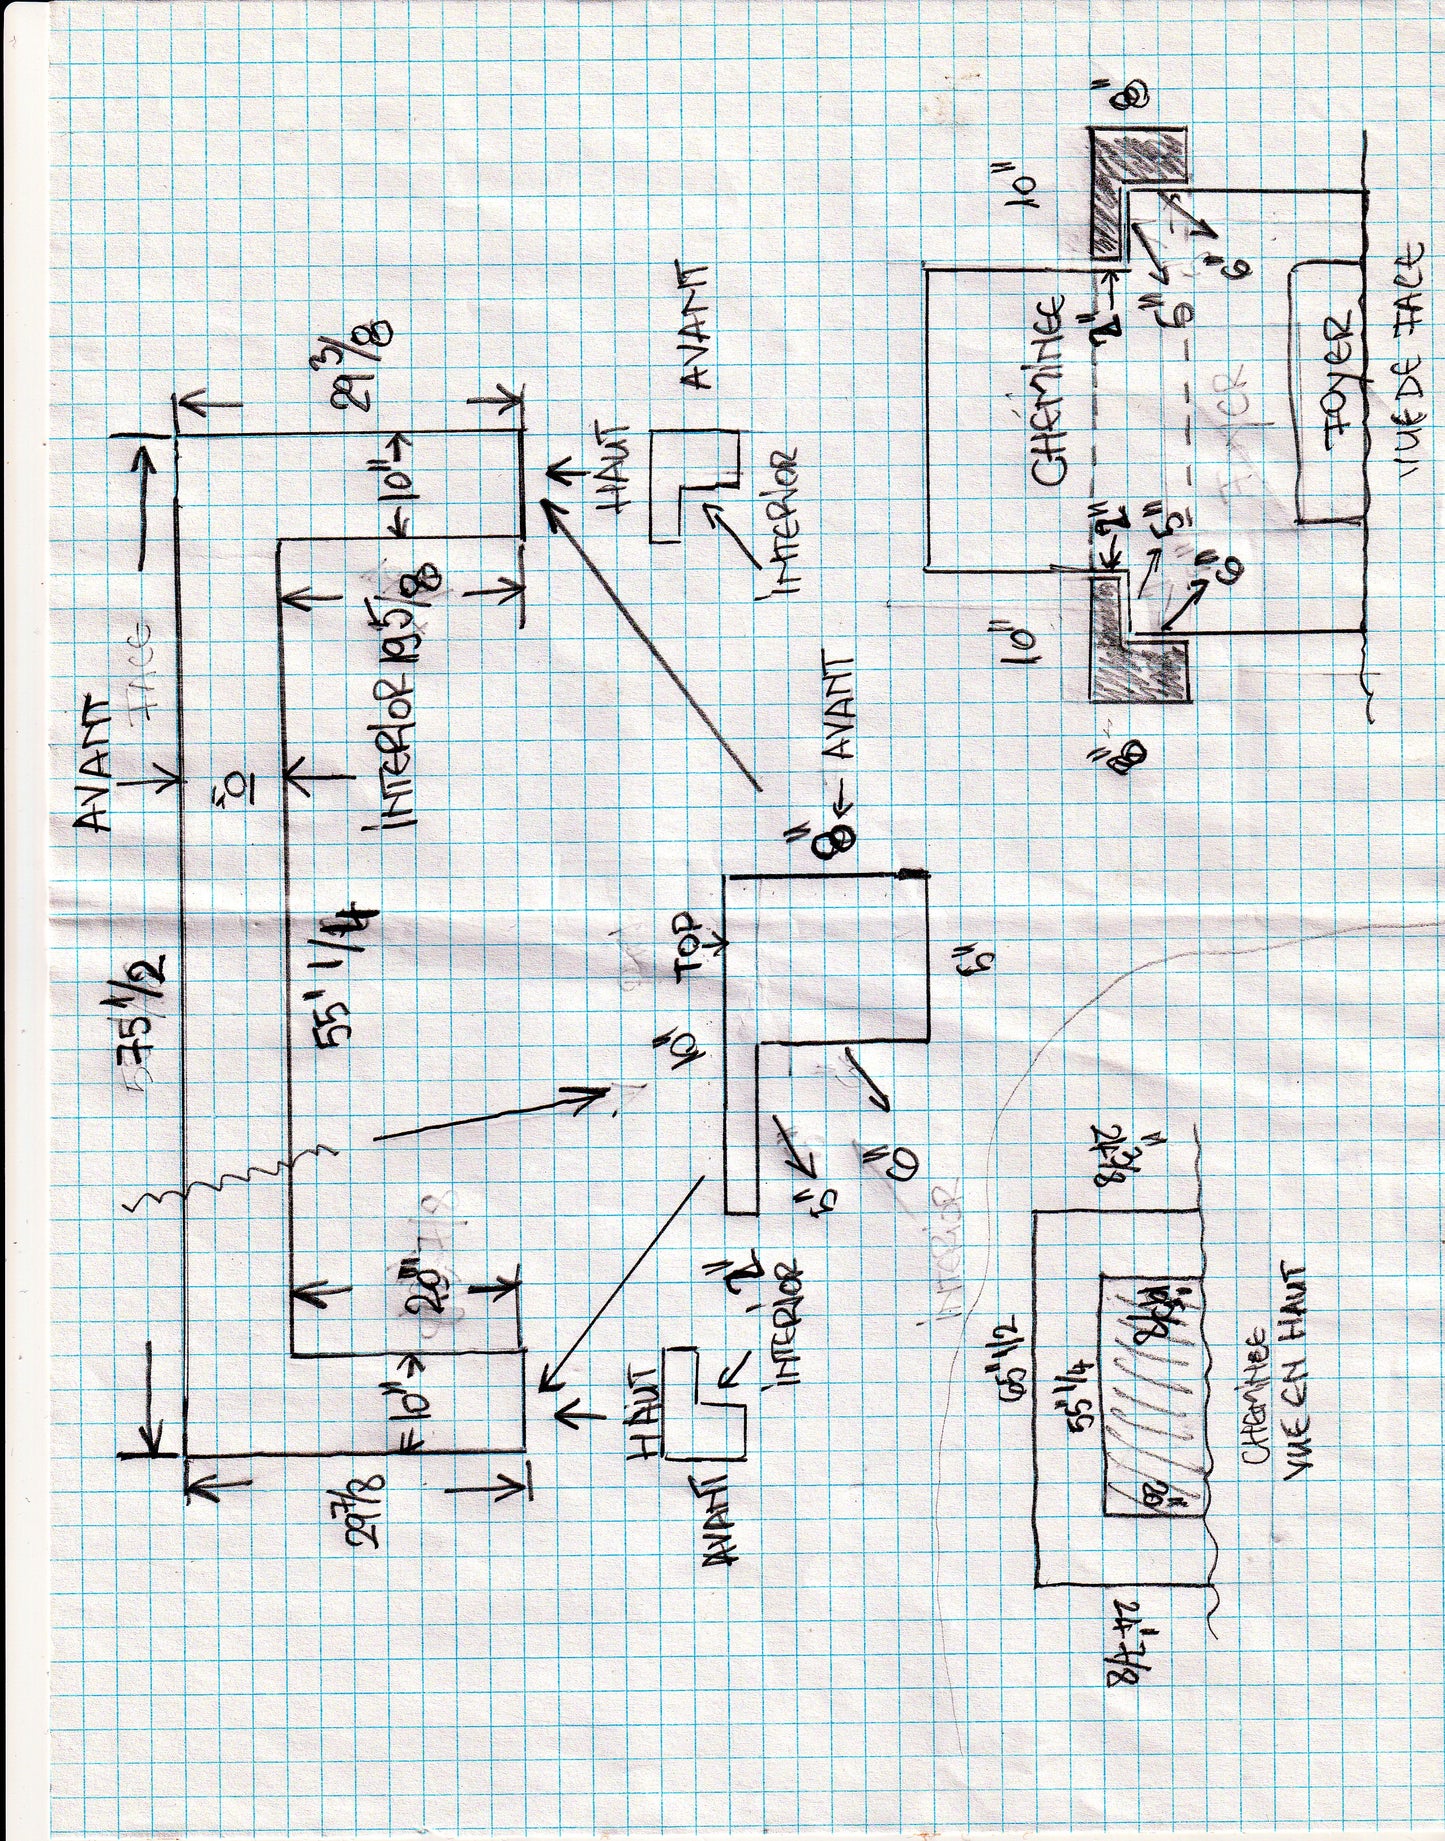 AVANT
FACE
75 1/2
10"
55" 1/4
INTERIOR 19 5/8
29 3/8
←10"→
20"
7/8
←10"→
29 7/8
HAUT
AVANT
INTERIOR
HAUT
AVANT
INTERIOR
TOP
10"
8" ← AVANT
5"
6"
5"
2"
INTERIOR
10"
8"
CHEMINEE
2"
5"
6"
10"
8"
2"
5"
6"
FOYER
FOYER
VUE DE FACE
65" 1/2
55" 1/4
20"
19" 5/8
24" 7/8
CHEMINEE
VUE EN HAUT